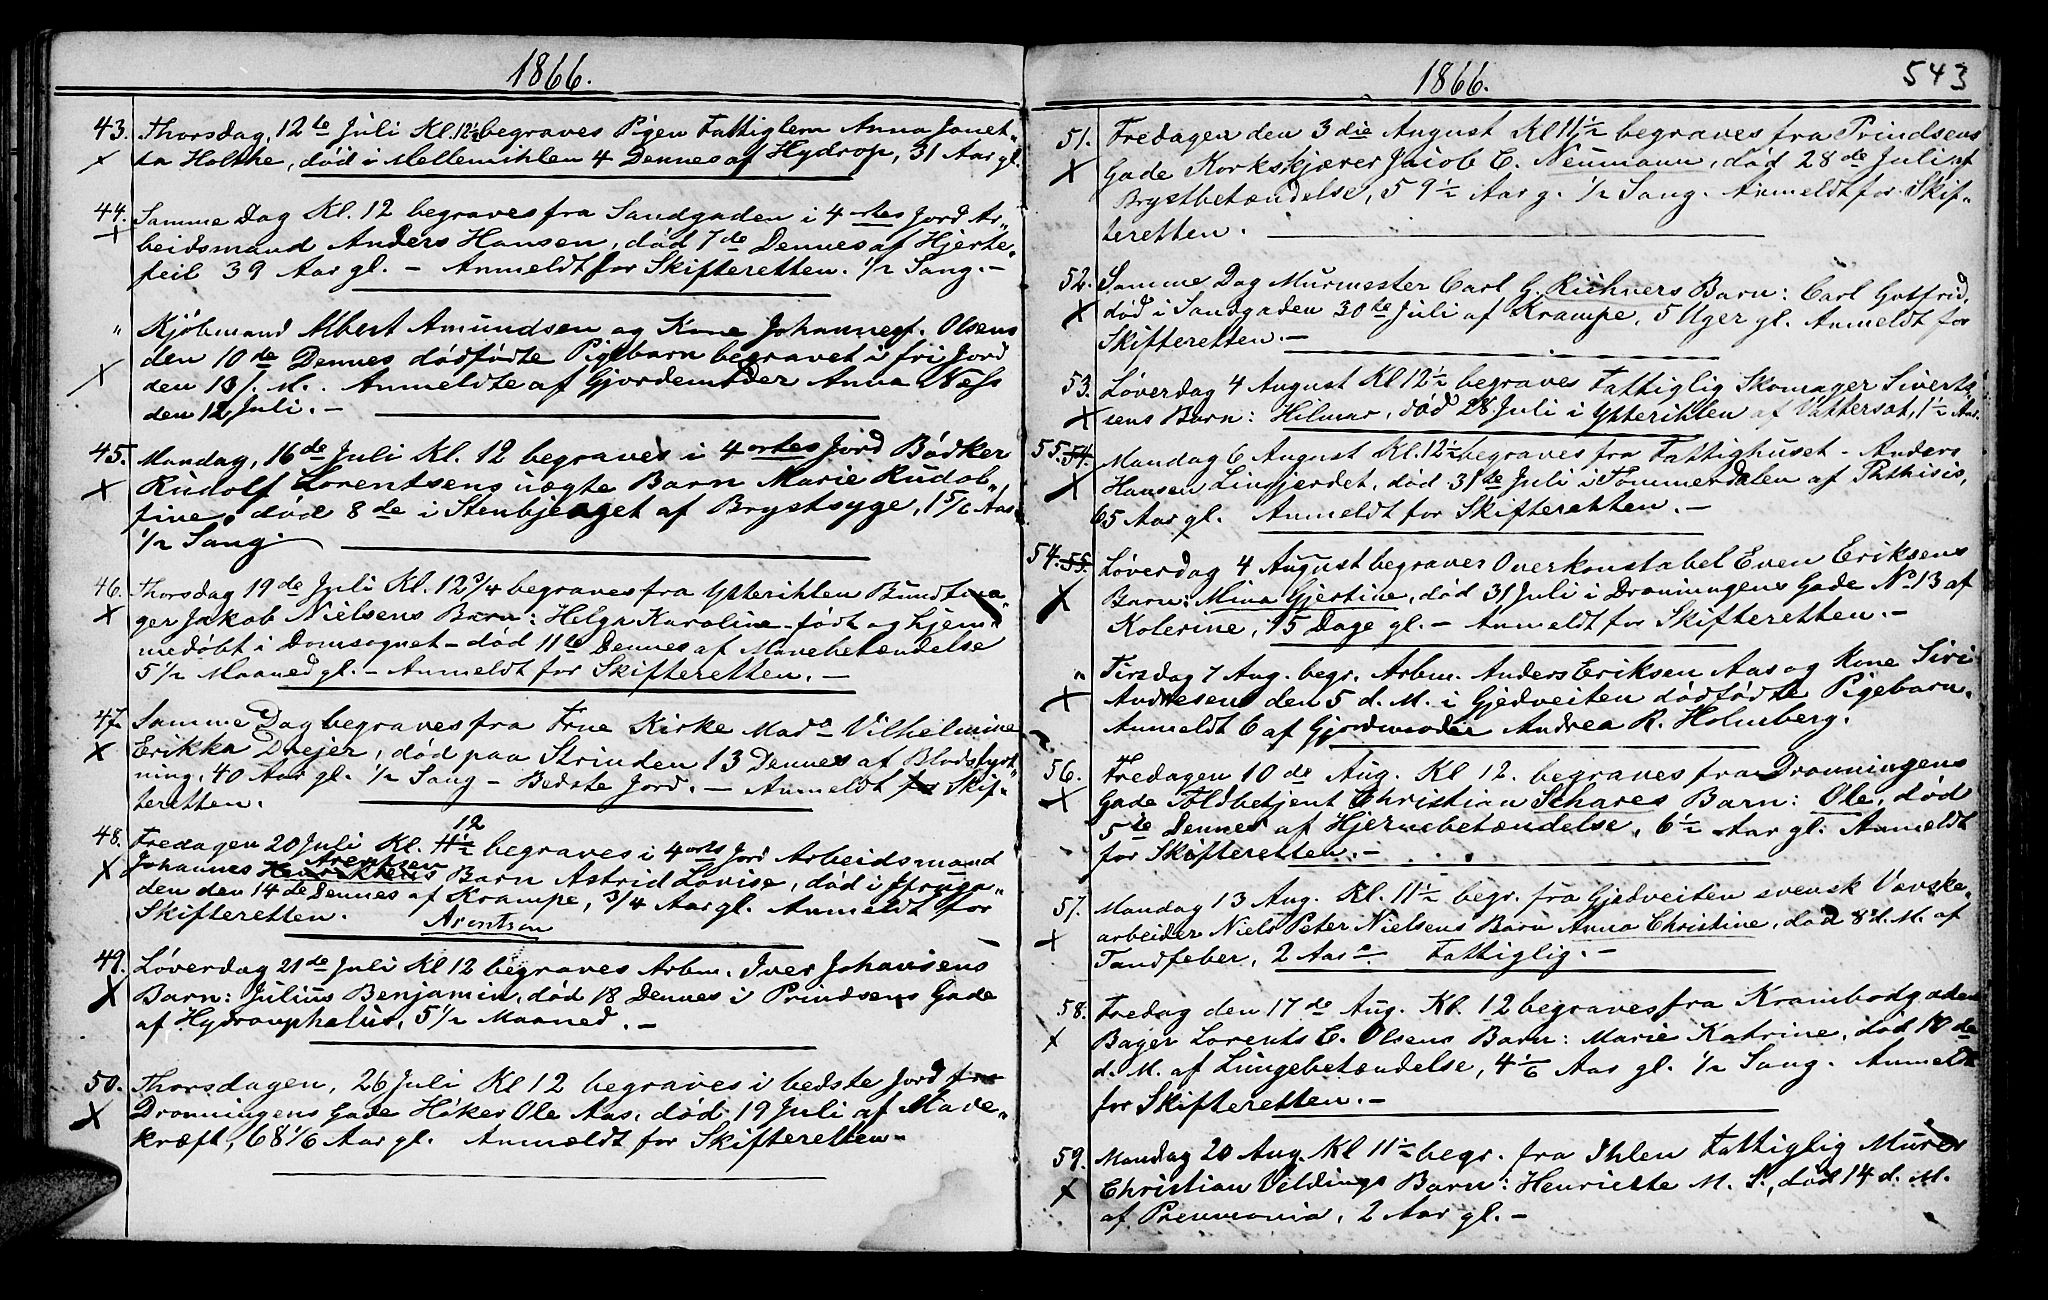 1866.
43. Thorsdag, 12te Juli Kl. 12½ begraves Pigen Fattiglem Anna Janet-
ta Holthe, død i Mellemihlen 4 Dennes af Hydrop, 31 Aar gl.
44. Samme Dag Kl. 12 begraves fra Sandgaden i 4 ortes Jord Ar-
beidsmand Anders Hansen, død 7de Dennes af Hjerte-
feil 39 Aar gl. – Anmeldt for Skifteretten. ½ Sang. –
" Kjøbmand Albert Amundsen og Kone Johanne f. Olsens
den 10de Dennes dødfødte Pigebarn begravet i fri Jord
den 13/. M. Anmeldte af Gjordemoder Anna Næss
den 12 Juli. –
45. Mandag, 16de Juli Kl. 12 begraves i 4 ortes Jord Bødker
Rudolf Lorentsens uægte Barn Marie Rudol-
fine, død 8de i Stenbjerget af Brystsyge, 1 5/6 Aar
½ Sang.
46. Thorsdag 19de Juli Kl. 12¾ begraves fra Ytterihlen Bundtma-
ger Jakob Nielsens Barn: Helga Karoline – født og hjem-
medøbt i Domsognet – død 11te Dennes af Mavebetændelse
5½ Maaned gl. – Anmeldt for Skifteretten. –
47. Samme Dag begraves fra Frue Kirke Mad. Vilhelmine
Erikka Drejer, død paa Strinden 13 Dennes af Blodstyrt-
ning, 40 Aar gl. ½ Sang – Bedste Jord. – Anmeldt for Skif-
teretten.
12
48. Fredagen 20 Juli Kl. 11½ begraves i 4 ortes Jord Arbeidsmand
Arentsen
Johannes Henriksens Barn Astrid Lovise, død i
den den 14de Dennes af Krampe, ¾ Aar gl. Anmeldt for
Skifteretten. Arentsen
49. Løverdag 21de Juli Kl 12 begraves Arbm. Iver Johansens
Barn: Julius Benjamin, død 18 Dennes i Prindsens Gade
af Hydrouphalus, 5½ Maaned. –
50. Thorsdagen, 26 Juli Kl 12 begraves i bedste Jord fra
Dronningens Gade Høker Ole Aas, død 19 Juli af Mave-
kræft, 68 1/6 Aar gl. Anmældt for Skifteretten –
1866. 543
51. Fredagen den 3die August Kl 11½ begraves fra Prindsens
Gade Korkskjærer Jacob C. Neumann, død 28de Juli af
Brystbetændelse, 59½ Aar g. ½ Sang. Anmeldt for Skif-
teretten.
52. Samme Dag Murmester Carl G. Richners Barn: Carl Gotfrid,
død i Sandgaden 30te Juli af Krampe, 5 Uger gl. Anmeldt for
Skifteretten. –
53. Løverdag 4 August Kl 12½ begraves Fattiglig Skomager Siverts-
sens Barn: Hilmar, død 28 Juli i Ytterihlen af Vattersot, 1½ Aar.
55. 54. Mandag 6 August Kl. 12½ begraves fra Fattighuset – Anders
Hansen Lindjerdet, død 31te Juli i Tømmerdalen af Phthisis,
65 Aar gl. Anmeldt for Skifteretten. –
54. 55. Løverdag 4 August begraver Overkonstabel Even Eriksens
Barn: Mina Gjertine, død 31 Juli i Dronningens Gade No 13 af
Kolerine, 15 Dage gl. – Anmeldt for Skifteretten. –
" Tirsdag 7 Aug. begr. Arbm. Anders Eriksen Aas og Kone Siri
Andresens den 5 d. M. i Gjedveiten dødfødte Pigebarn.
Anmeldt 6 af Gjordemoder Andrea R. Holmberg.
56. Fredagen 10de Aug. Kl 12. begraves fra Dronningens
Gade Toldbetjent Christian Schares Barn: Ole, død
5te Dennes af Hjernebetændelse, 6½ Aar gl. Anmeldt
for Skifteretten. –
57. Mandag 13 Aug. Kl. 11½ begr. fra Gjedveiten svensk Væske-
arbeider Niels Peter Nielsens Barn Anna Christine, død 8 d. M. af
Tandfeber, 2 Aar. Fattiglig. –
58. Fredag den 17de Aug. Kl. 12 begraves fra Krambodgaden
Bager Lorents C. Olsens Barn: Marie Katrine, død 10de
d. M. af Lungebetændelse, 4 1/6 Aar gl. ½ Sang. Anmeldt
for Skifteretten. –
59. Mandag 20 Aug. Kl 11½ begr. fra Ihlen Fattiglig Murer
Christian Veldings Barn: Henriette M. S., død 14 d. M.
af Pneumonia, 2 Aar gl. –